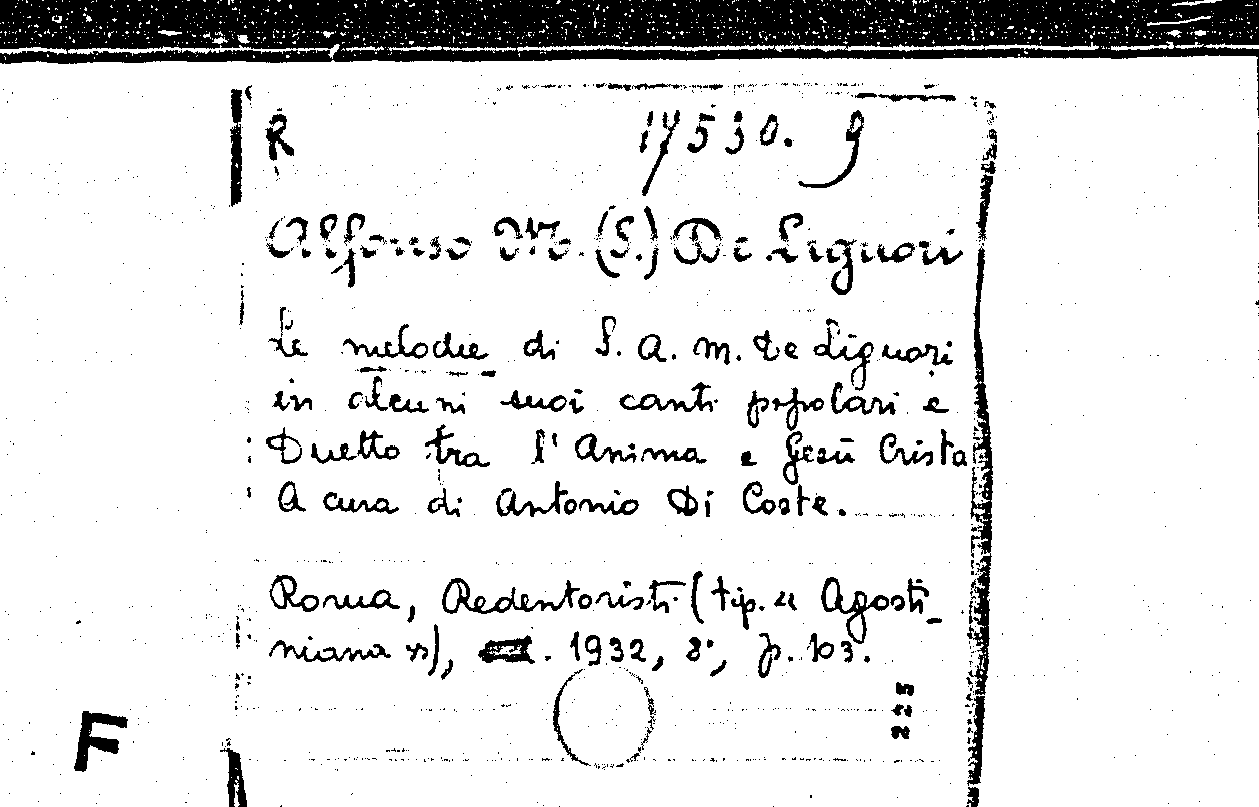 R 17530. 9
Alfonso M. (S.) De Liguori
Le melodie di S. A. M. De Liguori
in alcuni suoi canti popolari e
Duetto tra l'Anima e Gesù Cristo
A cura di Antonio Di Coste.
Roma, Redentoristi (tip. « Agosti_
niana »), . 1932, 8°, p. 103.
225
F